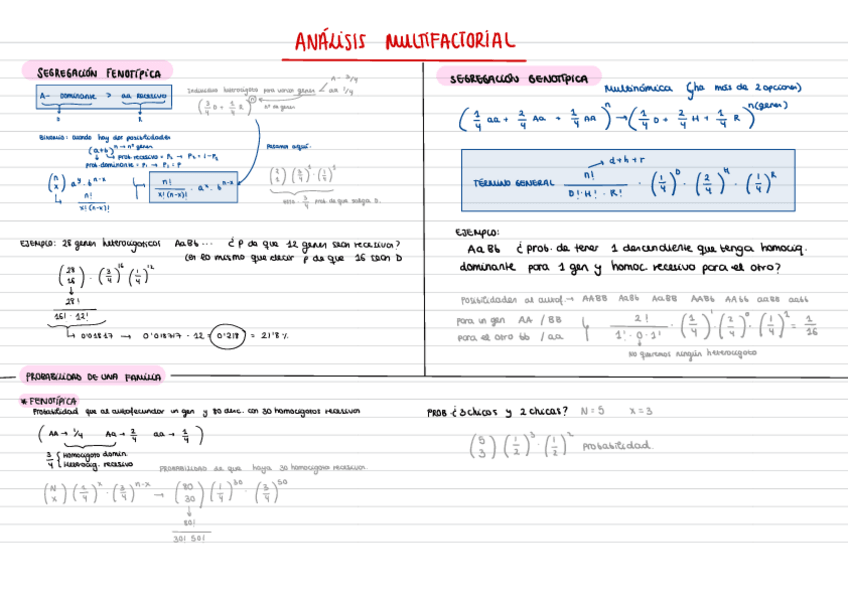 ANÁLISIS MULTIFACTORIAL
SEGREGACIÓN FENOTÍPICA
A- dominante > aa recesivo
D R
Individuos heterocigotos para varios genes A- 3/4 aa 1/4
(3/4 D + 1/4 R)^n nº de genes
Binomio: cuando hay dos posibilidades
(a+b)^n → nº genes
prob. recesivo = P₂ → P₂ = 1-P₁
prob. dominante = P₁ → P₁ = P
(n x) a^x · b^n-x
n! / x!(n-x)!
n! / x!(n-x)! · a^x · b^n-x
Pasamos aquí.
prob de que salga D.
EJEMPLO: 28 genes heterocigoticos AaBb... ¿P de que 12 genes sean recesivos?
es lo mismo que decir P de que 16 sean D
(28 16) · (3/4)^16 (1/4)^12
28! / 16! · 12!
0'01817 → 0'018717 · 12 = 0'218 = 21'8 %
SEGREGACIÓN GENOTÍPICA
Multinómica (ha más de 2 opciones)
(1/4 aa + 2/4 Aa + 1/4 AA)^n → (1/4 D + 2/4 H + 1/4 R)^n(genes)
d+h+r
TÉRMINO GENERAL n! / D! · H! · R! · (1/4)^D · (2/4)^H · (1/4)^R
EJEMPLO:
AaBb ¿prob. de tener 1 descendiente que tenga homocig.
dominante para 1 gen y homoc. recesivo para el otro?
Posibilidades al autof. → AABB AaBb AaBB AABb AAbb aaBB aabb
para un gen AA / BB
para el otro bb / aa
2! / 1! · 0 · 1! · (1/4)^1 · (2/4)^0 · (1/4)^1 = 1/16
no queremos ningún heterocigoto
PROBABILIDAD DE UNA FAMILIA
* FENOTÍPICA
Probabilidad que al autofecundar un gen y 80 desc. con 30 homocigotos recesivos
(AA → 1/4 Aa → 2/4 aa → 1/4)
3/4 { Homocigoto domin.
Heterocig. recesivo
PROBABILIDAD de que haya 30 homocigoto recesivos.
(N x) (1/4)^x · (3/4)^n-x → (80 30) (1/4)^30 · (3/4)^50
80!
30! 50!
PROB ¿3 chicos y 2 chicas? N = 5 x = 3
(5 3) (1/2)^3 · (1/2)^2 Probabilidad.